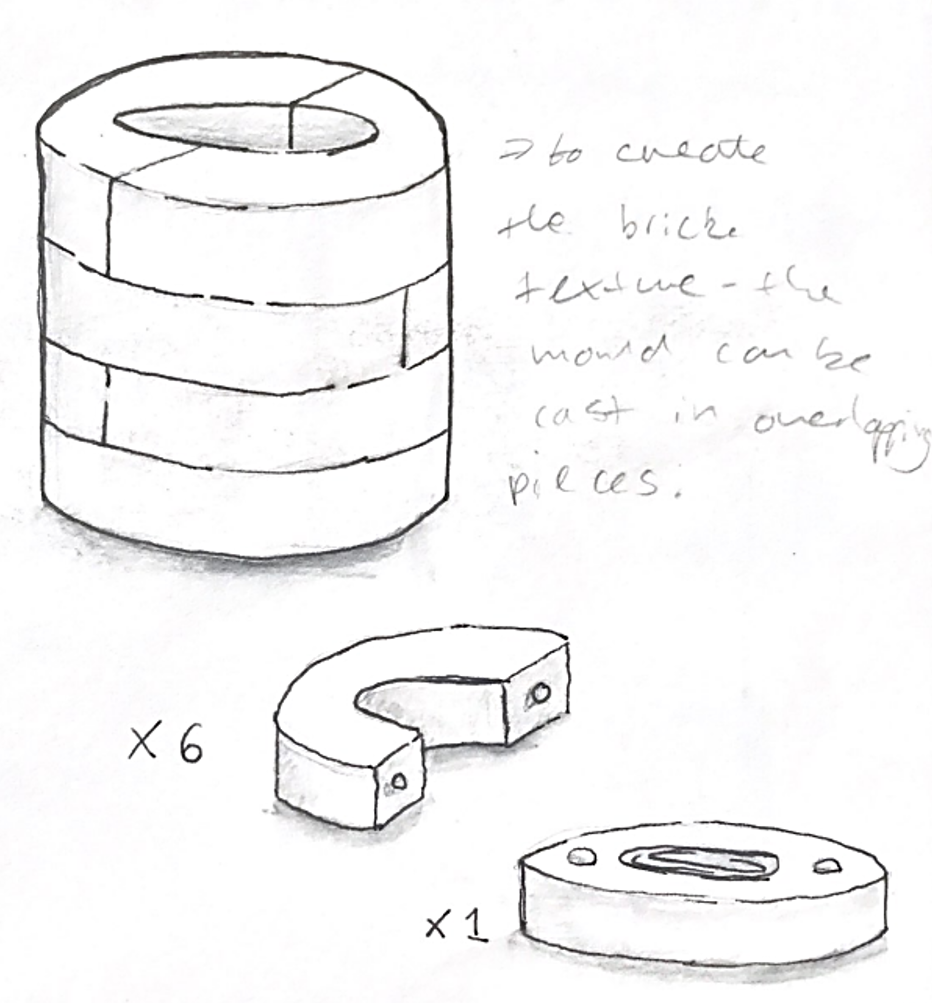 ⇒ to create
the brick
texture - the
mould can be
cast in overlapping
pieces.
X 6
X 1